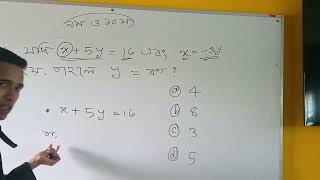 যদি x + 5y = 16 এবং x = -3y
হয়, তাহলে y = কত ?
ⓐ 4
• x + 5y = 16
ⓑ 8
বা,
ⓒ 3
ⓓ 5